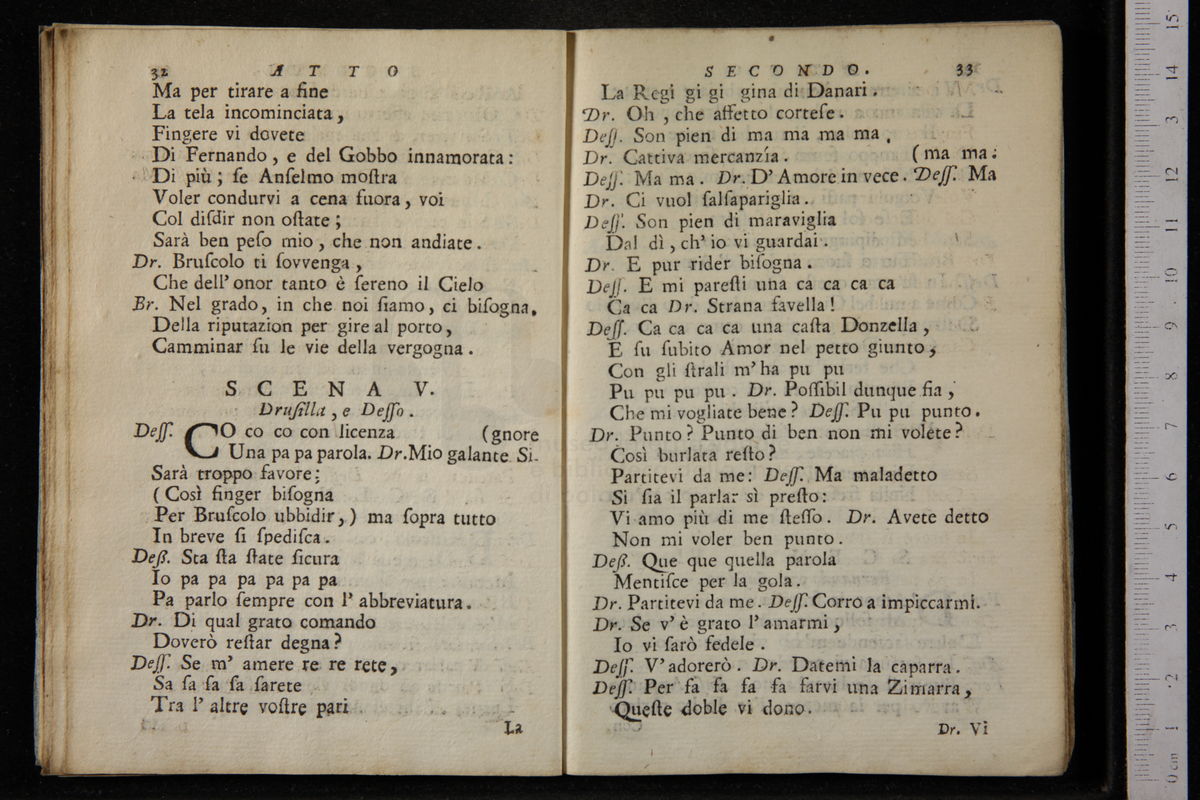 32 A T T O
Ma per tirare a fine
La tela incominciata,
Fingere vi dovete
Di Fernando, e del Gobbo innamorata:
Di più; ſe Anſelmo moſtra
Voler condurvi a cena fuora, voi
Col diſdir non oſtate;
Sarà ben peſo mio, che non andiate.
Dr. Bruſcolo ti ſovvenga,
Che dell' onor tanto è ſereno il Cielo
Br. Nel grado, in che noi ſiamo, ci biſogna,
Della riputazion per gire al porto,
Camminar ſu le vie della vergogna.
S C E N A V.
Druſilla, e Deſſo.
Deſſ. CO co co con licenza (gnore
Una pa pa parola. Dr. Mio galante Si-
Sarà troppo favore;
(Così finger biſogna
Per Bruſcolo ubbidir,) ma ſopra tutto
In breve ſi ſpediſca.
Deß. Sta ſta ſtate ſicura
Io pa pa pa pa pa pa
Pa parlo ſempre con l' abbreviatura.
Dr. Di qual grato comando
Doverò reſtar degna?
Deſſ. Se m' amere re re rete,
Sa ſa ſa ſa ſarete
Tra l' altre voſtre pari
La
S E C O N D O. 33
La Regi gi gi gina di Danari.
Dr. Oh, che affetto corteſe.
Deſſ. Son pien di ma ma ma ma,
Dr. Cattiva mercanzía. (ma ma:
Deſſ. Ma ma. Dr. D' Amore in vece. Deſſ. Ma
Dr. Ci vuol ſalſapariglia.
Deſſ. Son pien di maraviglia
Dal dì, ch' io vi guardai.
Dr. E pur rider biſogna.
Deſſ. E mi pareſti una ca ca ca ca
Ca ca Dr. Strana favella!
Deſſ. Ca ca ca ca una caſta Donzella,
E ſu ſubito Amor nel petto giunto,
Con gli ſtrali m' ha pu pu
Pu pu pu pu. Dr. Poſſibil dunque fia,
Che mi vogliate bene? Deſſ. Pu pu punto.
Dr. Punto? Punto di ben non mi volete?
Così burlata reſto?
Partitevi da me: Deſſ. Ma maladetto
Si ſia il parlar sì preſto:
Vi amo più di me ſteſſo. Dr. Avete detto
Non mi voler ben punto.
Deß. Que que quella parola
Mentiſce per la gola.
Dr. Partitevi da me. Deſſ. Corro a impiccarmi.
Dr. Se v' è grato l' amarmi,
Io vi ſarò fedele.
Deſſ. V' adorerò. Dr. Datemi la caparra.
Deſſ. Per fa fa fa fa farvi una Zimarra,
Queſte doble vi dono.
Dr. Vi